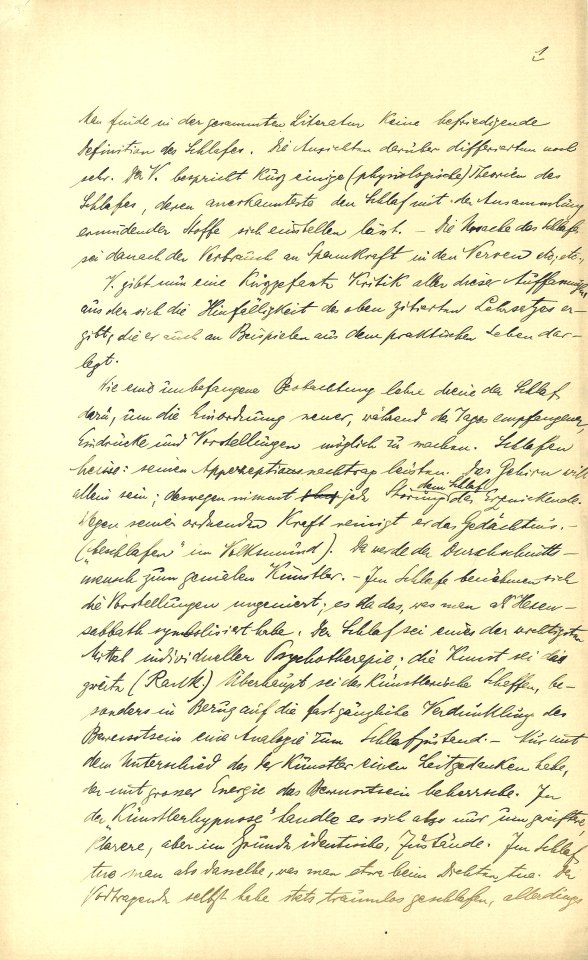 2
Man finde in der gesammten Literatur keine befriedigende
Definition des Schlafes. Die Ansichten darüber differierten noch
sehr. Der V. bespricht kurz einige (physiologische) Theorien des
Schlafes, deren anerkannteste den Schlaf mit der Ansammlung
ermüdender Stoffe sich einstellen lässt. – Die Ursache des Schlafes
sei danach der Verbrauch an Spannkraft in den Nerven etc. etc.
V. gibt nun eine kurzgefasste Kritik aller dieser Auffassungen
aus der sich die Hinfälligkeit der oben zitierten Lehrsätze er-
gibt, die er auch an Beispielen aus dem praktischen Leben dar-
legt.
Wie eine unbefangene Beobachtung lehre diene der Schlaf
dazu, um die Einordnung neuer, während des Tages empfangener
Eindrücke und Vorstellungen möglich zu machen. Schlafen
heisse: seinen Apperzeptionsnachtrag leisten. Das Gehirn will
allein sein; deswegen nimmt jede Störung dem Schlaf das Erquickende.
Wegen seiner ordnenden Kraft reinigt er das Gedächtnis. –
("beschlafen" im Volksmund). Da werde der Durchschnitts-
mensch zum genialen Künstler. – Im Schlafe benehmen sich
die Vorstellungen ungeniert; es sei das, was man als Hexen-
sabbath symbolisiert habe. Der Schlaf sei eines der wichtigsten
Mittel individueller Psychotherapie; die Kunst sei das
zweite (Rank.) Überhaupt sei das Künstlerische Schaffen, be-
sonders in Bezug auf die Verdunklung des
Bewusstsein eine Analogie zum Schlafzustand – Nur mit
dem Unterschied dass der Künstler einen Leitgedanken habe,
der mit grosser Energie das Bewusstsein beherrsche. In
der "Künstlerhypnose" handle es sich also nur um
klarere, aber im Grunde identische, Zustände. Im Schlaf
tue man also dasselbe, was man etwa beim Dichten tue. Der
Vortragende selbst habe stets traumlos geschlafen, allerdings